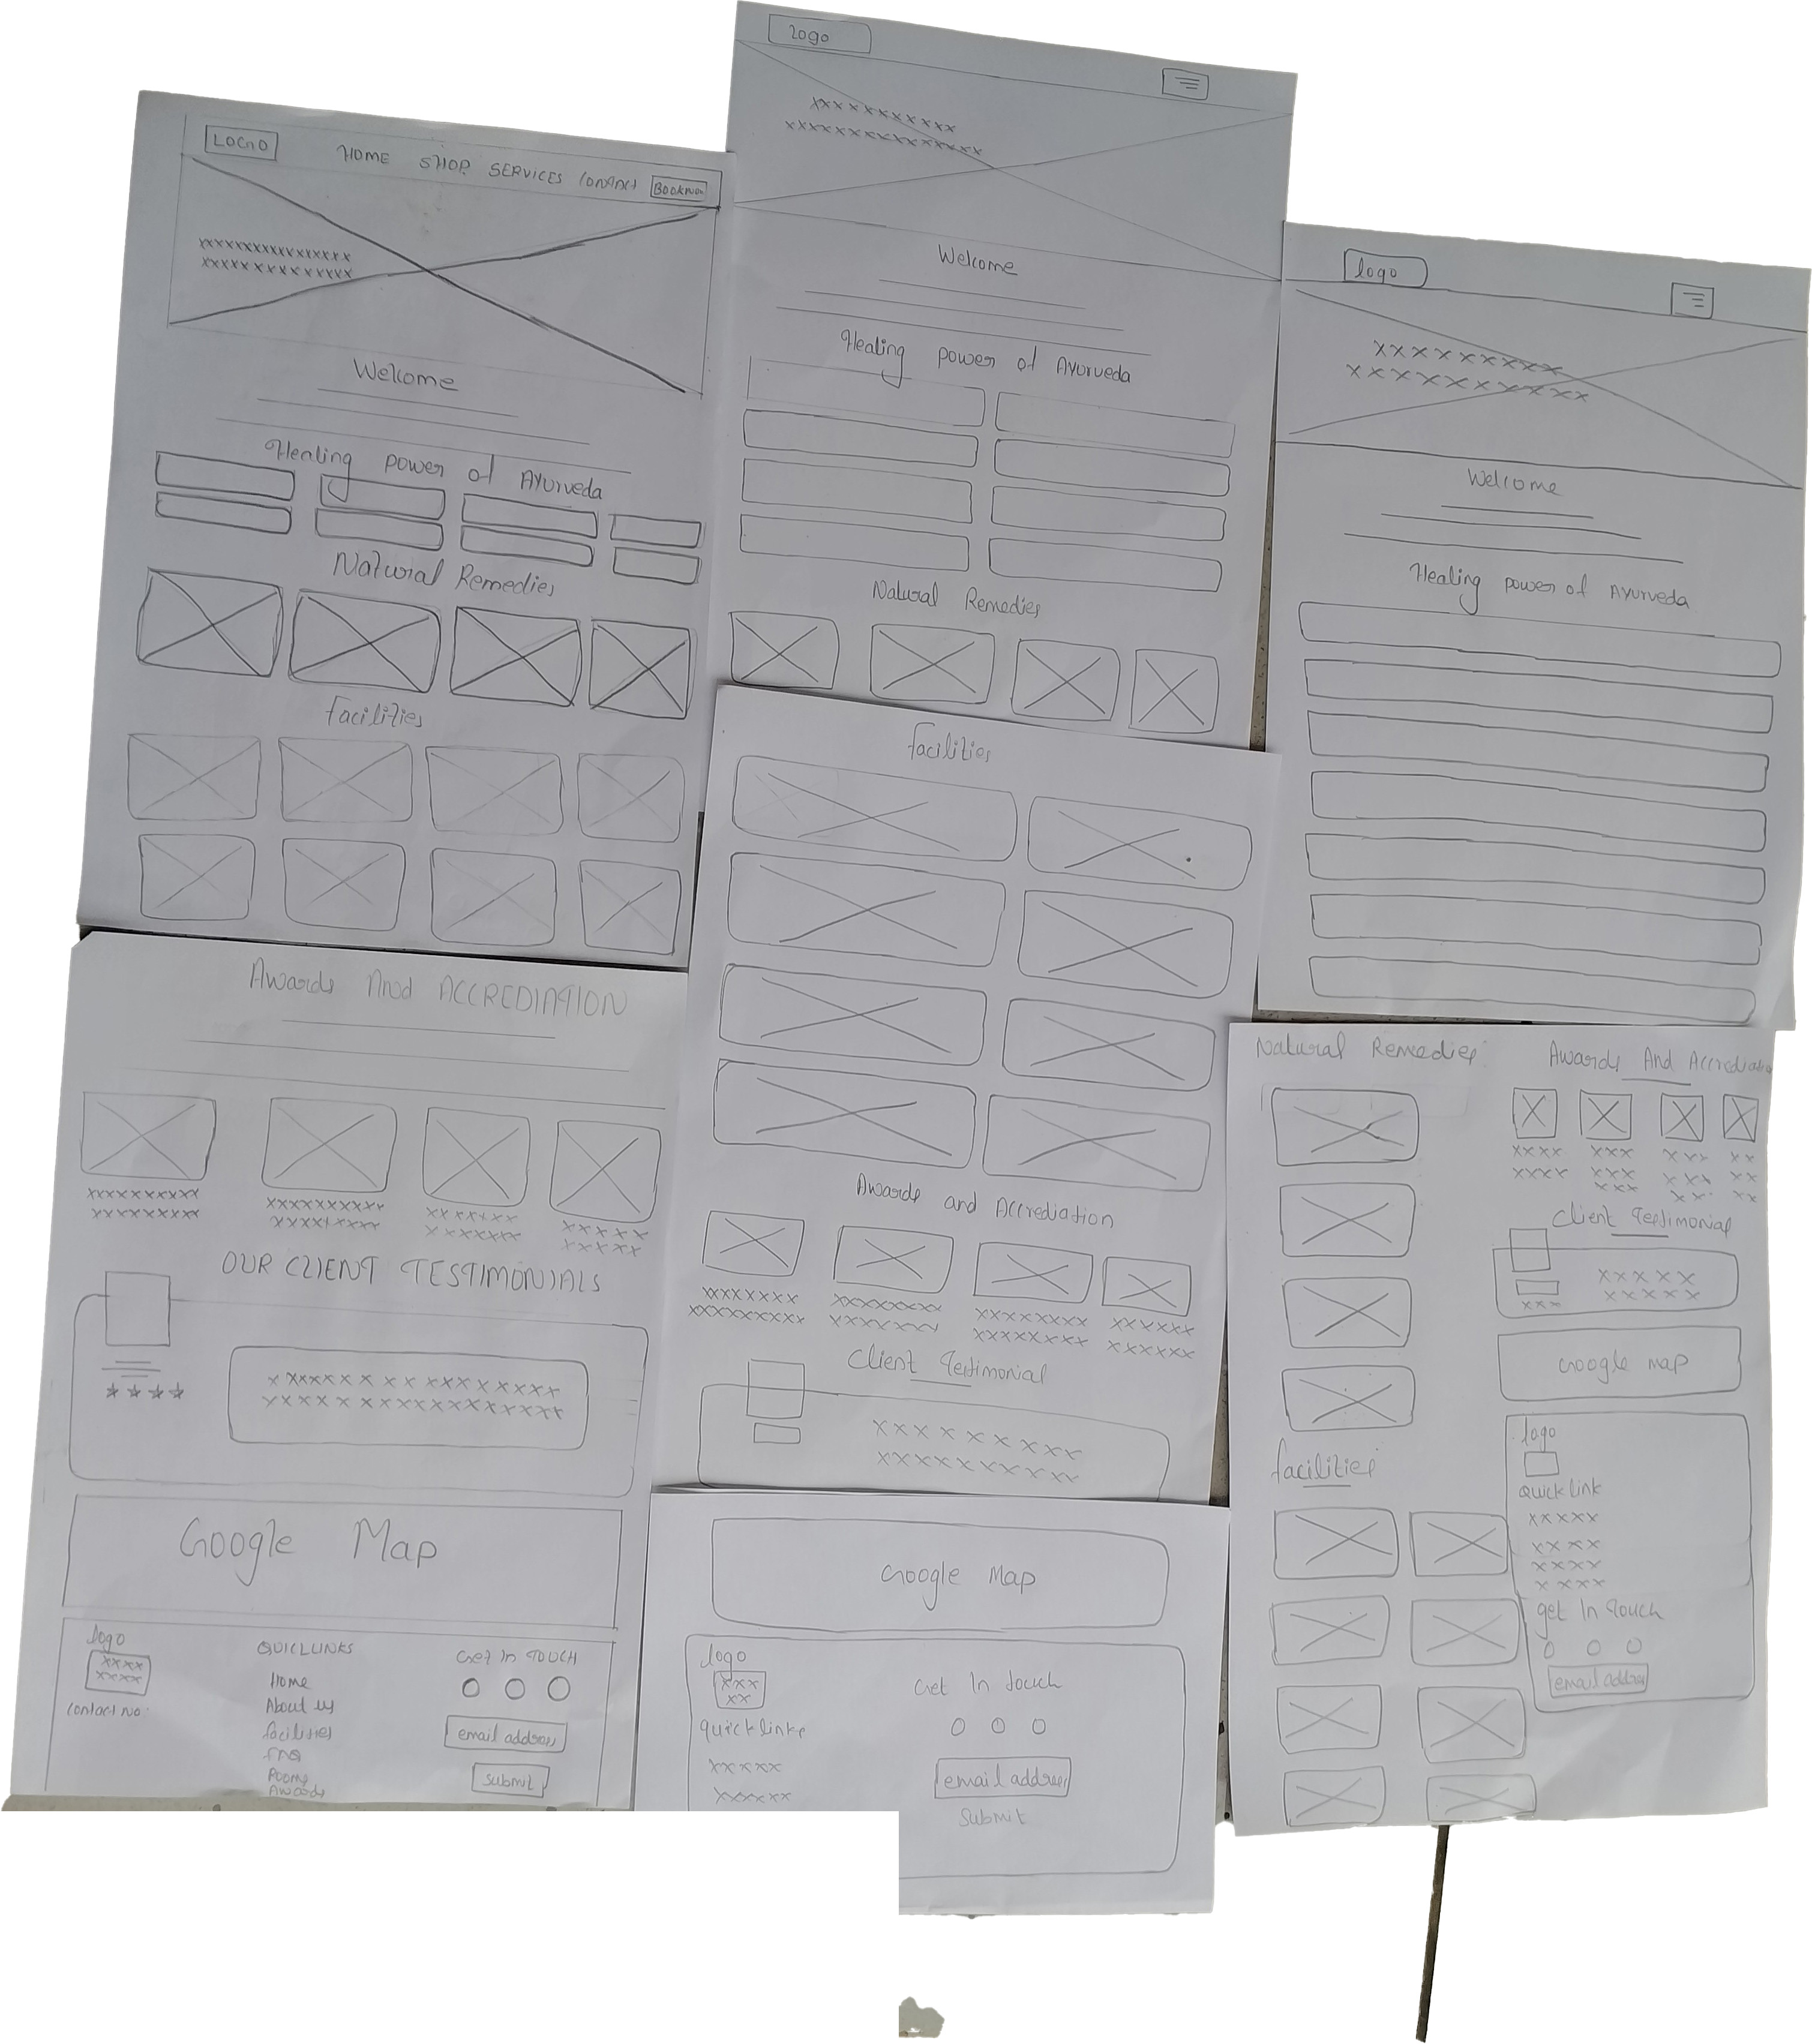 LOGO
HOME SHOP SERVICES CONTACT
xxxxxxxxxxxxxxx
xxxxxxxxxxxxxx
Welcome
Healing power of Ayurveda
Natural Remedies
facilities
Awards And ACCREDIATION
xxxxxxxxxx xxxxxxxxxx xxxxxxx xxxxx
xxxxxxxxx xxxxxxxxx xxxxxxx xxxxx
OUR CLIENT TESTIMONIALS
x xxxxx x x x xxx x xxxx
xxxxx x xxxxxxxxxxxxx
Google Map
logo
xxxx
xxxx
contact No:
QUICLINKS
Home
About us
facilities
FAQ
Rooms
Awards
Get In TOUCH
email address
submit
logo
xxxxxxxxxxx
xxxxxxxxxxxxxxx
Welcome
Healing power of Ayurveda
Natural Remedies
facilities
Awards and Accrediation
xxxxxxxx xxxxxxxx xxxxxxxx xxxxxx
xxxxxxxxxx xxxxxxx xxxxxxxx xxxxxx
Client Testimonial
xxxxxxxxx
xxxxxxxxxx
Google Map
logo
xxx
xx
quick links
xxxxx
xxxxxx
Get In touch
email address
Submit
logo
xxxxxxxxx
xxxxxxxxxxx
Welcome
Healing power of Ayurveda
Natural Remedies
facilities
Awards And Accrediation
xxxx xxx xxx xx
xxxx xxx xxx xx
xxx xx xx
Client Testimonial
xxxxx
xxxxx
xxx
Google Map
logo
Quick link
xxxxx
xxxx
xxxx
xxxx
get In touch
email addres